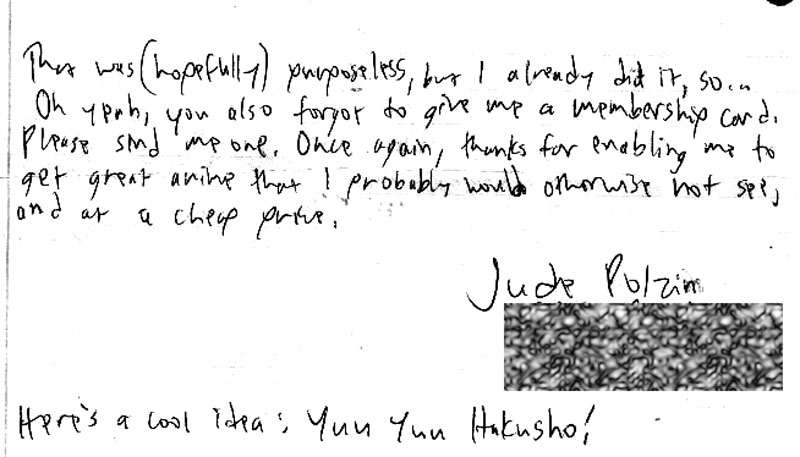 That was (hopefully) purposeless, but I already did it, so...
Oh yeah, you also forgot to give me a membership card.
Please send me one. Once again, thanks for enabling me to
get great anime that I probably would otherwise not see,
and at a cheap price.
Jude Polzin
Here's a cool idea: Yuu Yuu Hakusho!